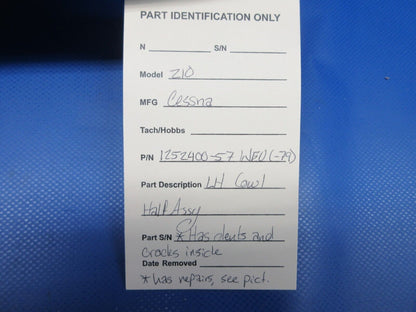 PART IDENTIFICATION ONLY
N ________ S/N ________
Model 210
MFG Cessna
Tach/Hobbs ________
P/N 1252400-57 WFU (-79)
Part Description LH Cowl
Half Assy
Part S/N * Has dents and
Cracks inside
Date Removed
* has repairs, see pict.